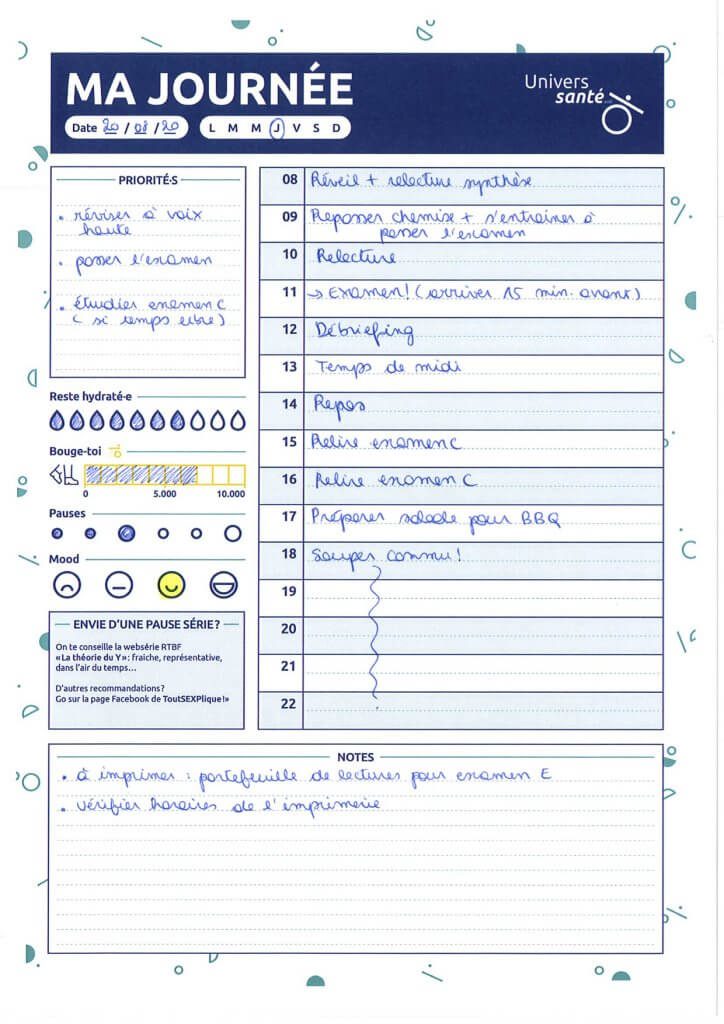 MA JOURNÉE
Univers
santé
Date 20 / 08 / 20
L M M J V S D
PRIORITÉ·S
• réviser à voix
haute
• passer l'examen
• étudier examen C
( si temps libre)
Reste hydraté·e
Bouge-toi
0 5.000 10.000
Pauses
Mood
ENVIE D'UNE PAUSE SÉRIE ?
On te conseille la websérie RTBF
« La théorie du Y » : fraiche, représentative,
dans l'air du temps…
D'autres recommandations?
Go sur la page Facebook de ToutSEXPlique !»
08 Réveil + relecture synthèse
09 Repasser chemise + s'entrainer à
passer l'examen
10 Relecture
11 → Examen! (arriver 15 min. avant)
12 Débriefing
13 Temps de midi
14 Repos
15 Relire examen C
16 Relire examen C
17 Préparer salade pour BBQ
18 Souper commu !
19
20
21
22
NOTES
• à imprimer : portefeuille de lectures pour examen E
• vérifier horaires de l'imprimerie